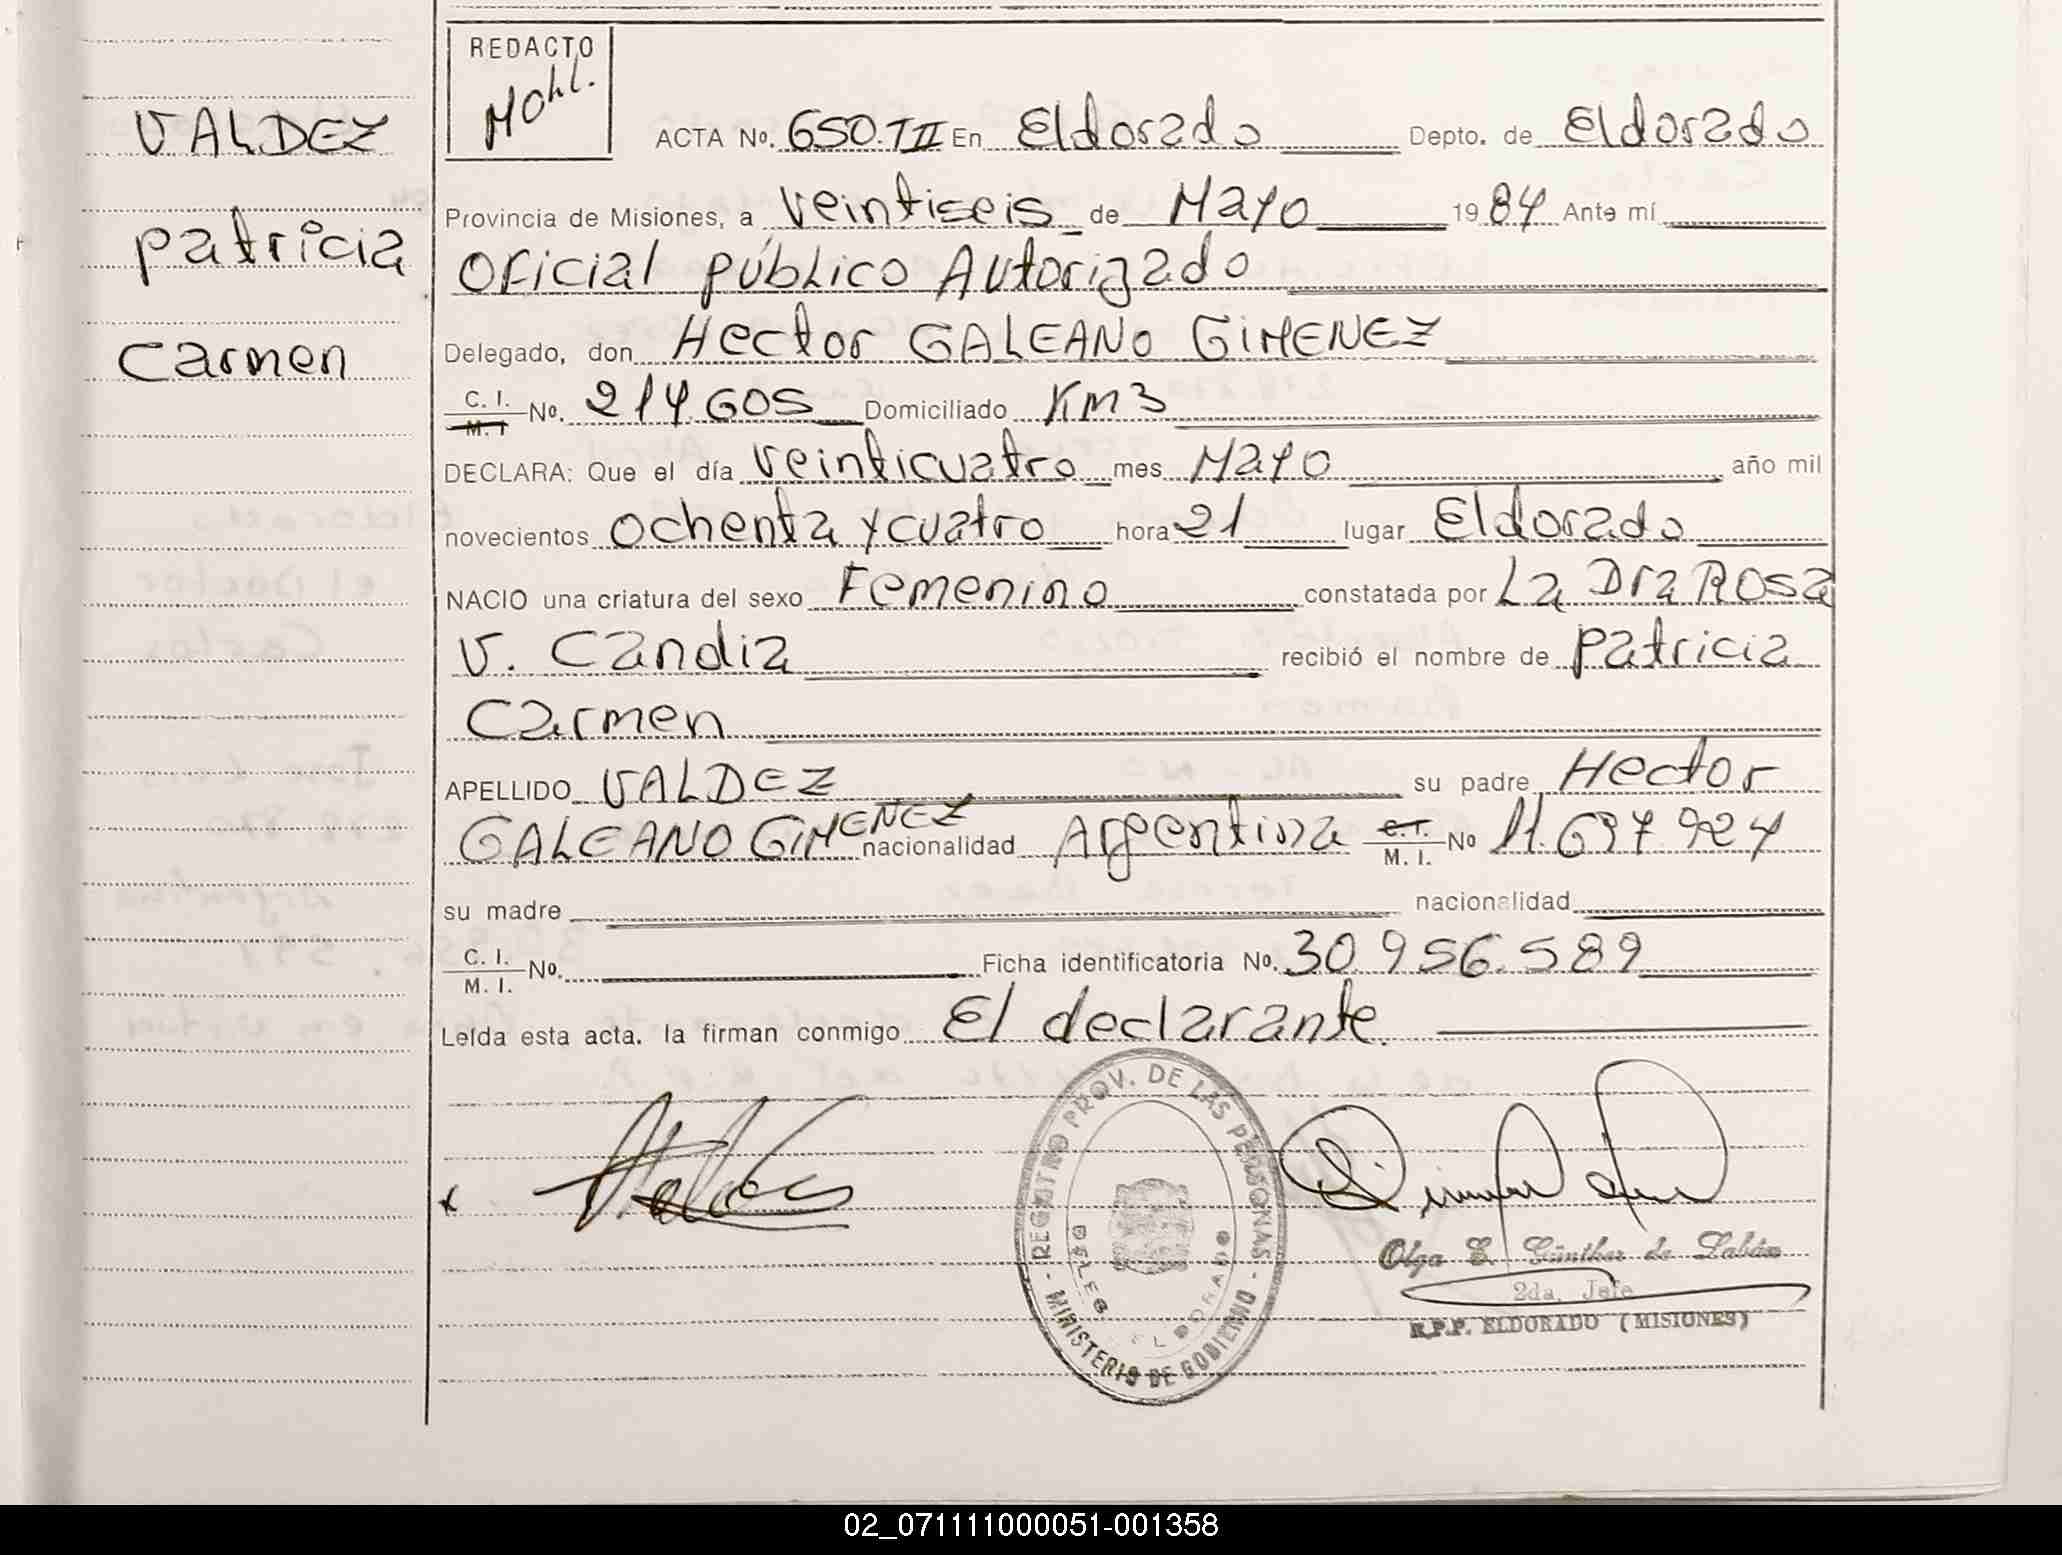 REDACTO
Mohl.
VALDEZ
patricia
Carmen
ACTA No. 650.TII En Eldorado Depto. de Eldorado
Provincia de Misiones, a veintiseis de Mayo 1984 Ante mí
Oficial público Autorizado
Delegado, don Hector GALEANO GIMENEZ
C. I. M. I No. 214.605 Domiciliado Km3
DECLARA: Que el día veinticuatro mes Mayo año mil
novecientos ochenta y cuatro hora 21 lugar Eldorado
NACIO una criatura del sexo Femenino constatada por La Dra Rosa
V. Candia recibió el nombre de patricia
Carmen
APELLIDO VALDEZ su padre Hector
GALEANO GIMENEZ nacionalidad Argentina C.I. M. I. No 11.697.924
su madre nacionalidad
C. I. M. I. No. Ficha identificatoria No. 30.956.589
Leída esta acta. la firman conmigo El declarante.
REGISTRO PROV. DE LAS PERSONAS - MINISTERIO DE GOBIERNO -
DELEG. ELDORADO
Olga E. Günther de Labán
2da. Jefe
R.P.P. ELDORADO (MISIONES)
02_071111000051-001358